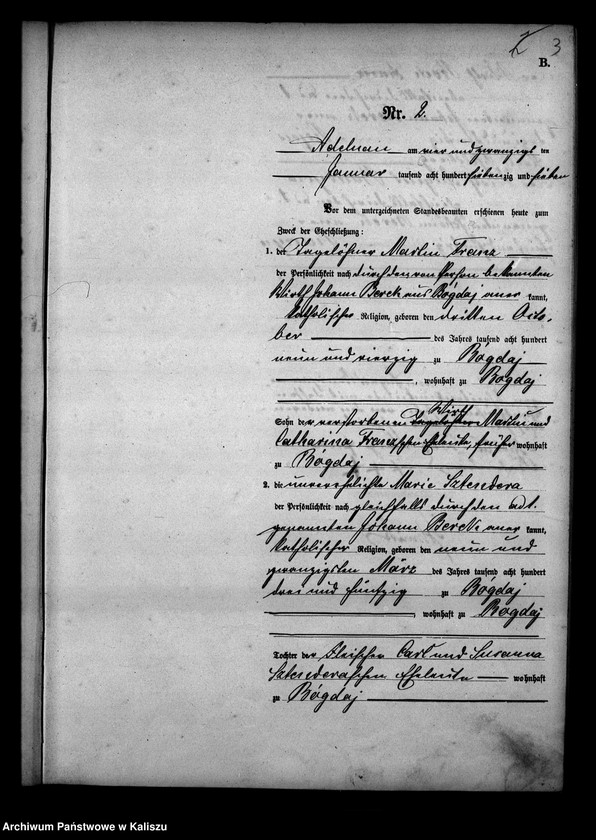 3
B.
Nr. 2.
Adelnau am vier und zwanzigsten
Januar tausend acht hundert siebenzig und sieben
Vor dem unterzeichneten Standesbeamten erschienen heute zum
Zweck der Eheschließung:
1. der Tagelöhner Martin Franz
der Persönlichkeit nach durch den von Person bekannten
Wirth Johann Berek aus Bógdaj aner kannt,
katholischer Religion, geboren den dritten Octo-
ber des Jahres tausend acht hundert
neun und vierzig zu Bógdaj
, wohnhaft zu Bógdaj
Wirth
Sohn der verstorbenen Tagelöhner Martin und
Catharina Franzschen Eheleute, früher wohnhaft
zu Bógdaj
2. die unverehelichte Marie Sztendera
der Persönlichkeit nach gleichfalls durch den
genannten Johann Berek aner kannt,
katholischer Religion, geboren den neun und
zwanzigsten März des Jahres tausend acht hundert
drei und fünfzig zu Bógdaj
, wohnhaft zu Bógdaj
Tochter der Carl und Susanna
Sztenderaschen Eheleute wohnhaft
zu Bógdaj
Archiwum Państwowe w Kaliszu